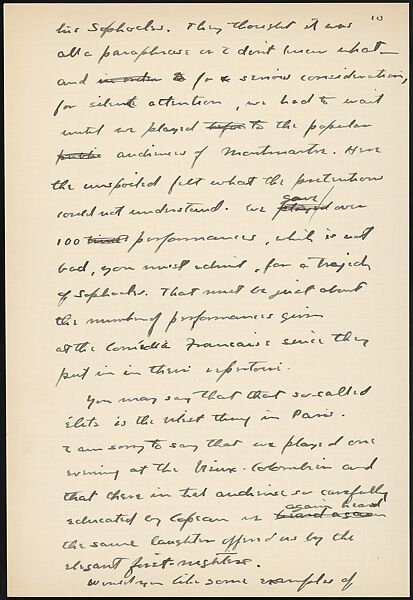 10
his Sophocles. They thought it was
all a paraphrase or I dont know what
and for serious consideration,
for silent attention, we had to wait
until we played ~~before~~ to the popular
~~public~~ audiences of Montmartre. Here
the unspoiled felt what the pretentious
could not understand. We ~~played~~ gave over
100 ~~times~~ performances, which is not
bad, you must admit, for a tragedy
of Sophocles. That must be just about
the number of performances given
at the Comédie Française since they
put in in their repertoire.
You may say that that so-called
élite is the thing in Paris.
I am sorry to say that we played one
evening at the Vieux-Colombier and
that there in that audience so carefully
educated by Copeau we ~~heard again~~ again heard
the same laughter offered us by the
elegant first-nighters.
Would you like some examples of